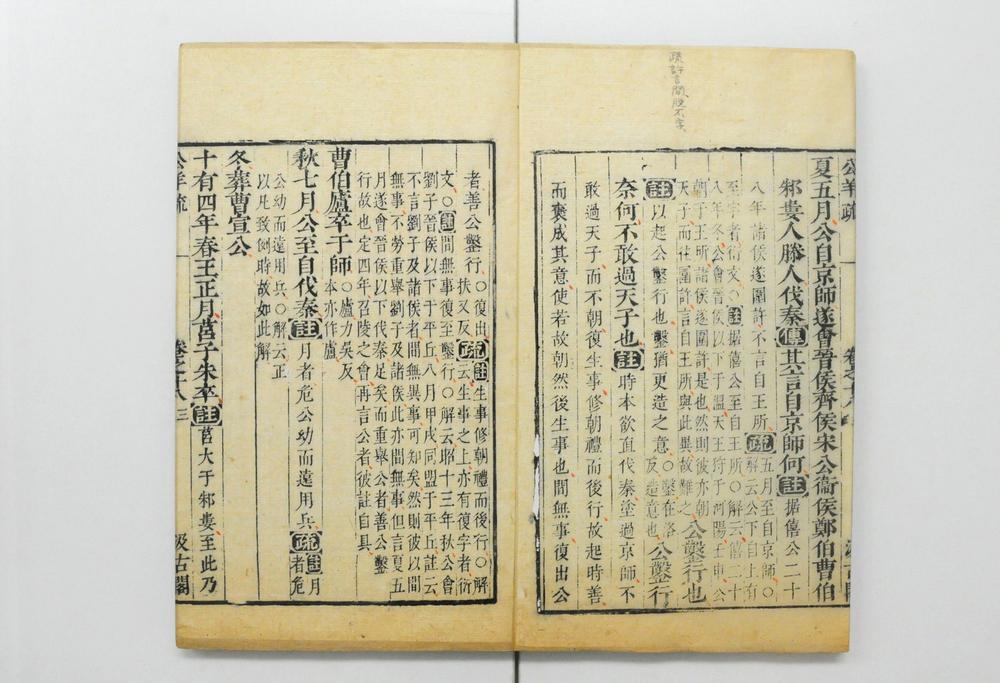 公羊疏
夏五月公自京師遂會晉侯齊侯宋公衞侯鄭伯曹伯
邾婁人滕人伐秦傳其言自京師何註据僖公二十
八年諸侯遂圍許不言自王所疏五月至自京師○
解云公下自上有
至字者衍文○註据僖公至自王所○解云僖二十
八年冬公會晉侯以下于溫天王狩于河陽壬申公
朝于王所諸侯遂圍許是也然則彼亦朝
天子而往圍許言自王所與此異故難之公鑿行也
註以起公鑿行也鑿猶更造之意○鑿在洛反造意也公鑿行
奈何不敢過天子也註時本欲直伐秦塗過京師不
敢過天子而不朝復生事修朝禮而後行故起時善
而褒成其意使若故朝然後生事也間無事復出公
者善公鑿行○復出扶又反疏註生事修朝禮而後行○解
云生事之上亦有復字者衍
文○註間無事復至鑿行○解云昭十三年秋公會
劉子晉侯以下于平丘八月甲戌同盟于平丘註云
不言劉子及諸侯者間無異事可知矣然則彼以間
無事不勞重舉劉子及諸侯此亦間無事但言夏五
月遂會晉侯以下伐秦足矣而重舉公者善公鑿
行故也定四年召陵之會再言公者彼註自具
曹伯廬卒于師○廬力吳反本亦作盧
秋七月公至自伐秦註月者危公幼而遠用兵疏註月者危
公幼而遠用兵○解云正
以凡致例時故如此解
冬葬曹宣公
十有四年春王正月莒子朱卒註莒大于邾婁至此乃
公羊疏
卷之十八
三
汲古閣